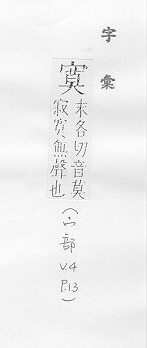 字彙
寞
末各切音莫
寂寞無聲也
(宀部
V.4
P.13)